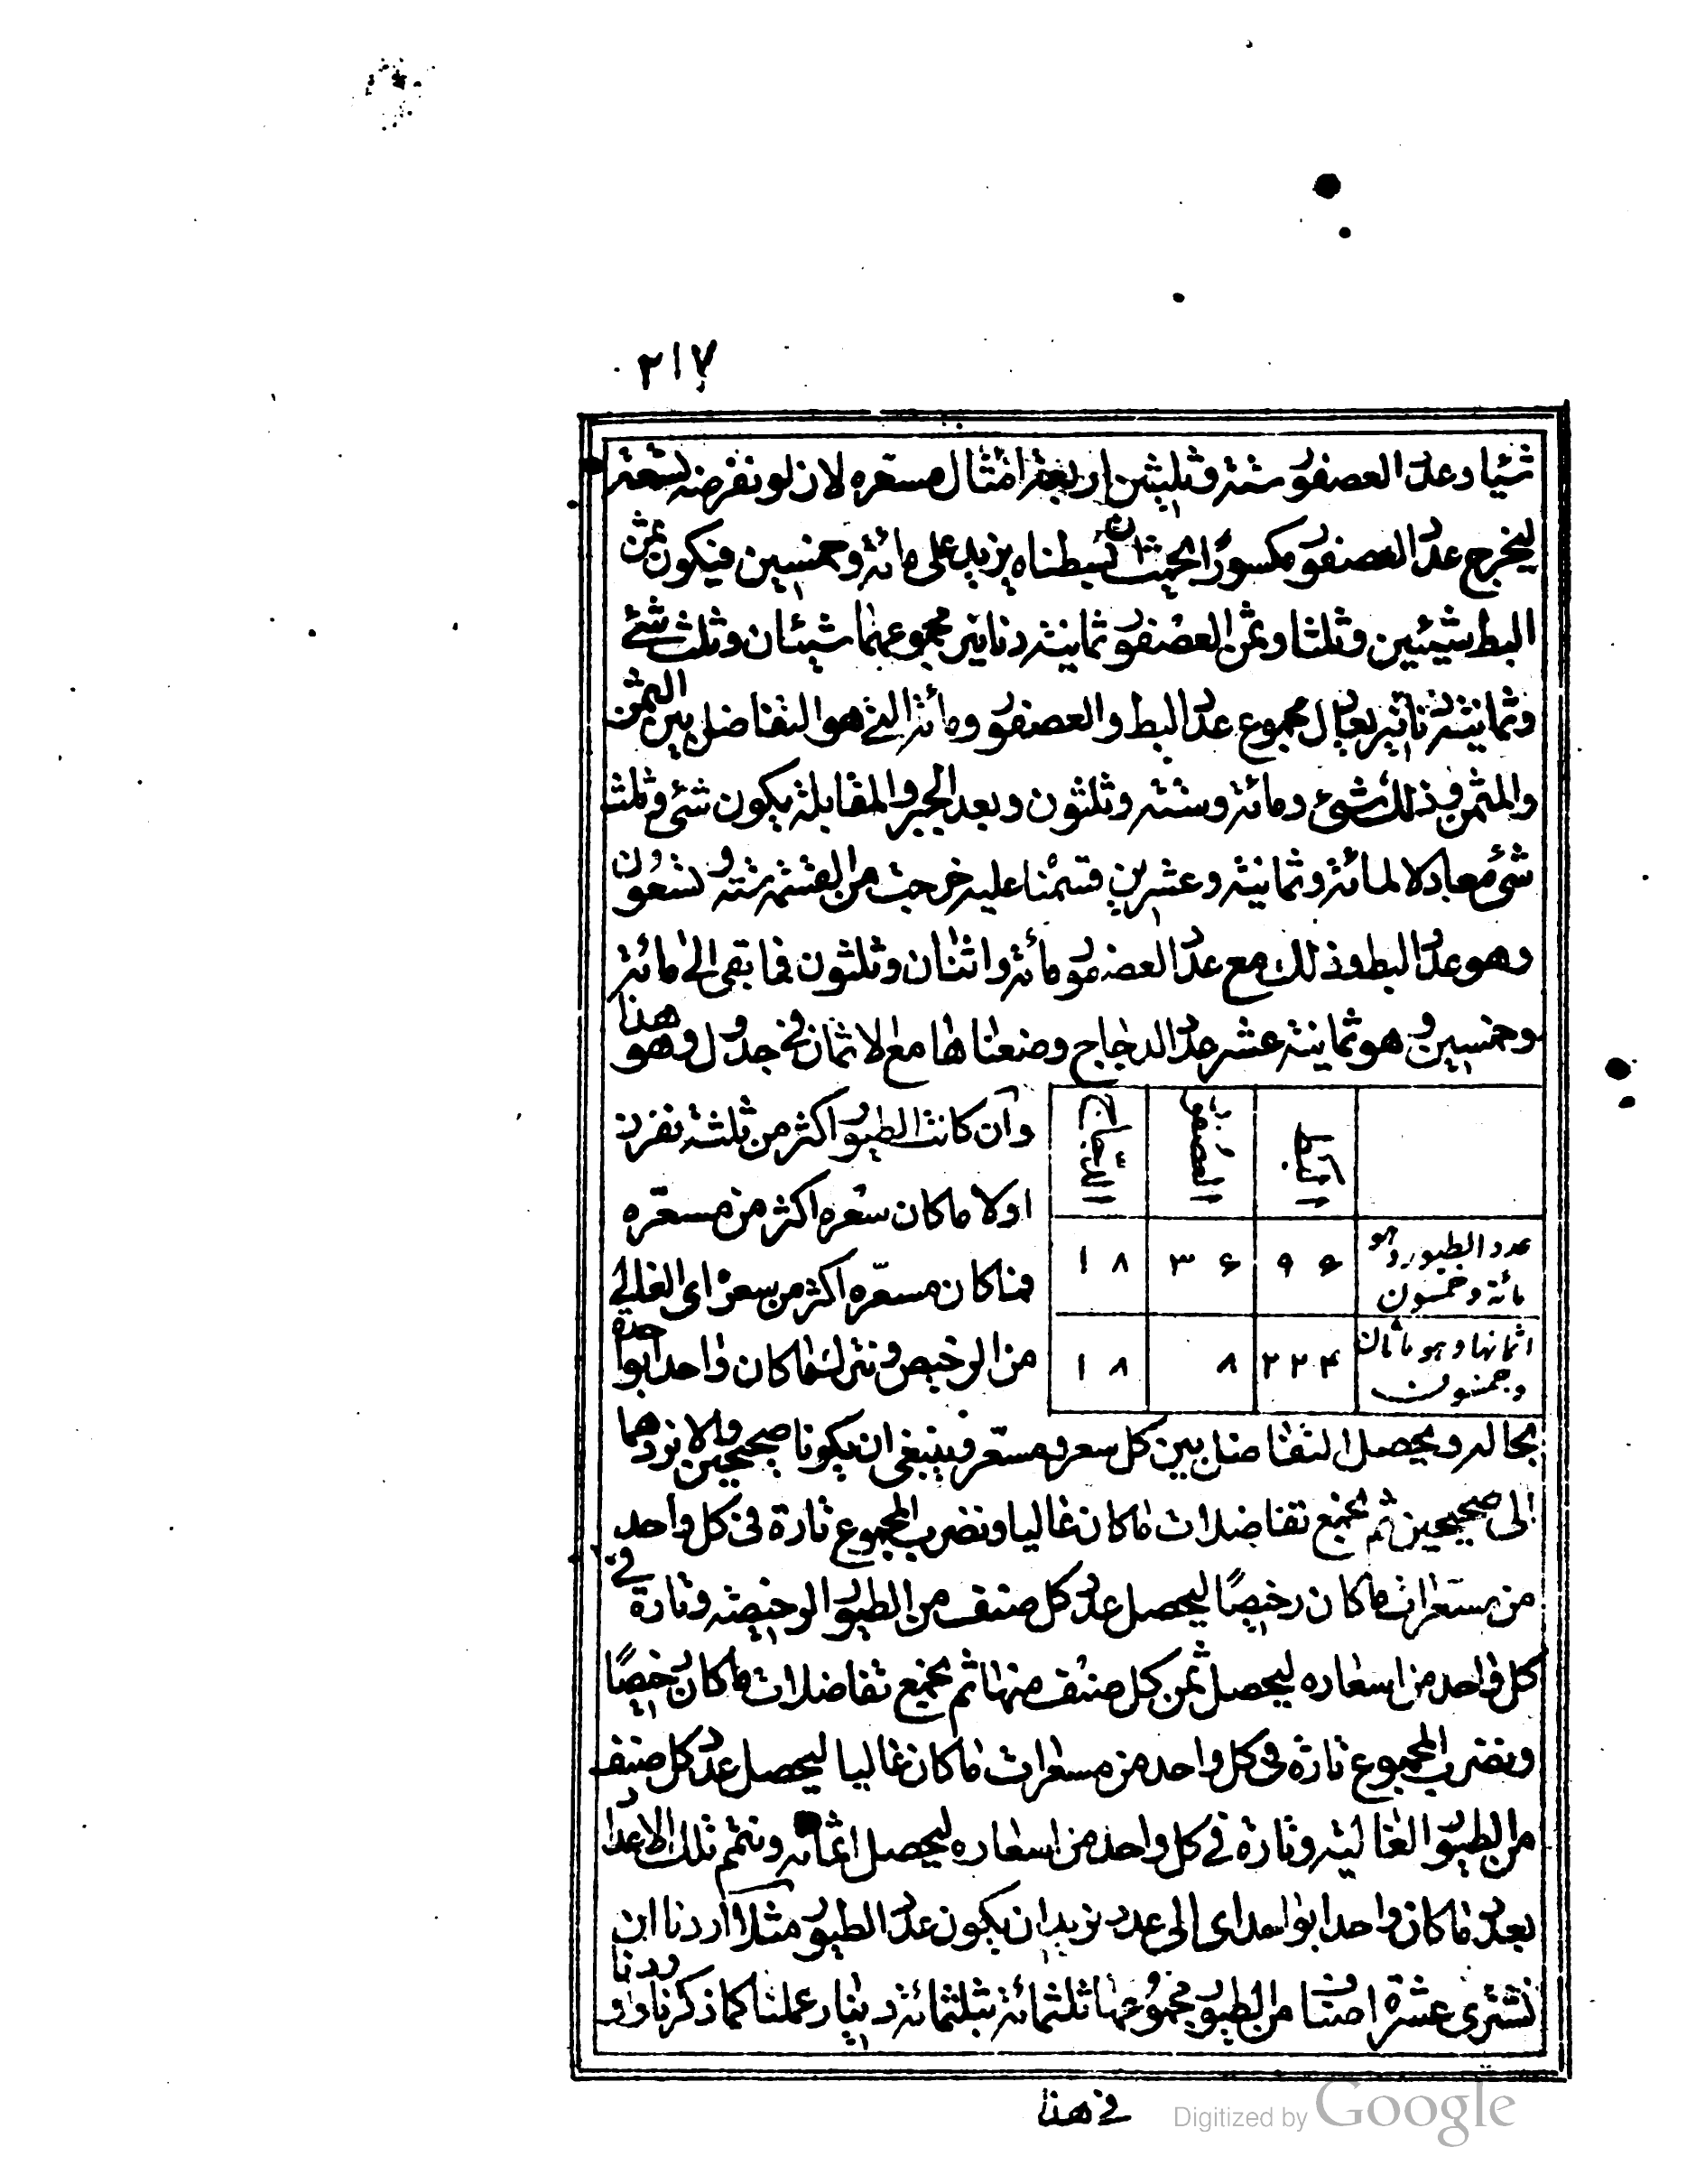 ٢١٧
شيئا وعدد العصفور ستة وثلثين اربعة امثال مسعّره لانه لو نفرضه تسعة
ليخرج عدد العصفور مكسورًا بحيث ان بسطناه يزيد على مائة وخمسين فيكون ثمن
البط شيئين وثلثا وثمن العصفور ثمانية دنانير مجموعهما شيئان وثلث شئ
وثمانية دنانير يعادل مجموع عدد البط والعصفور ومائة التى هو التفاضل بين الثمن
والمثمن وذلك شئ ومائة وستة وثلثون وبعد الجبر والمقابلة يكون شئ وثلث
شئ معادلا لمائة وثمانية وعشرين قسمنا عليه خرجت من القسمة ستة وتسعون
وهو عدد البط وذلك مع عدد العصفور مائة واثنان وثلثون فما بقى الى مائة
وخمسين وهو ثمانية عشر عدد الدجاج وضعناها مع الاثمان فى جدول وهو هذا
البط العصفور الدجاج
عدد الطيور وهو مائة وخمسون ٩۶ ٣۶ ١٨
اثمانها وهو مائتان وخمسون ٢٢۴ ٨ ١٨
وان كانت الطيور اكثر من ثلثة نفرز
اولا ما كان سعره اكثر من مسعّره
مما كان مسعّره اكثر من سعره اى الغالى
من الرخيص ونترك ما كان واحدا بواحدة
بحاله ويحصل التفاضل بين كل سعر ومسعّر وينبغى ان يكونا صحيحين والا نردهما
الى صحيحين ثم نجمع تفاضلات ما كان غاليا ونضرب المجموع تارة فى كل واحد
من مسعّرات ما كان رخيصًا ليحصل عدد كل صنف من الطيور الرخيصة وتارة فى
كل واحد من اسعاره ليحصل ثمن كل صنف منها ثم نجمع تفاضلات ما كان رخيصًا
ونضرب المجموع تارة فى كل واحد من مسعرات ما كان غاليا ليحصل عدد كل صنف
من الطيور الغالية وتارة فى كل واحد من اسعاره ليحصل اثمانه ونتمم تلك الاعداد
بعدد ما كان واحدا بواحد اى الى عدد نريد ان يكون عدد الطيور مثلا اردنا ان
نشترى عشرة اصناف من الطيور مجموعها ثلثمائة بثلثمائة دينار عملنا كما ذكرنا واوردنا
فى هذا
Digitized by Google